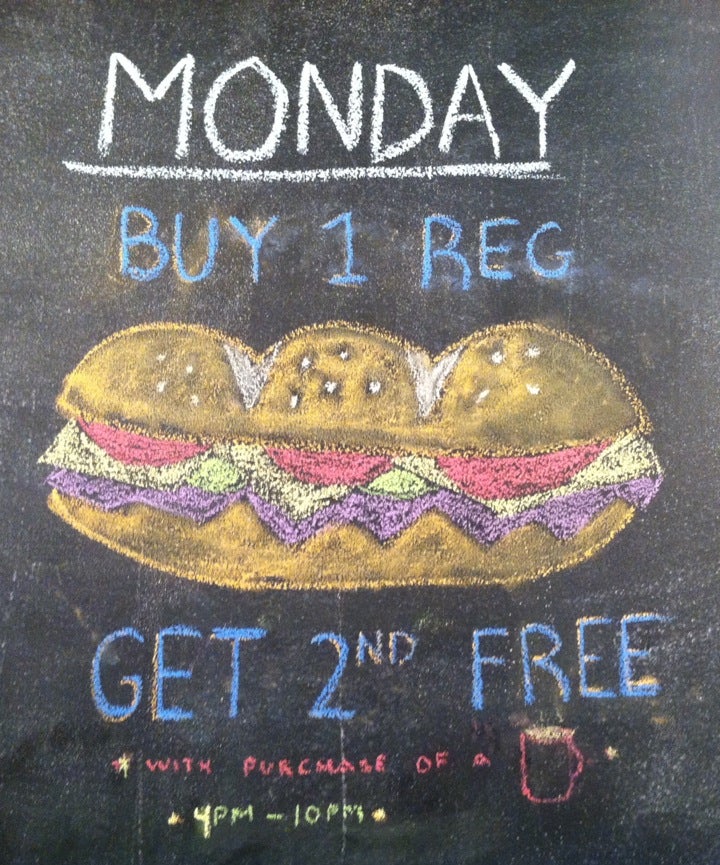 MONDAY
BUY 1 REG
GET 2ND FREE
* WITH PURCHASE OF A *
* 4PM - 10PM *